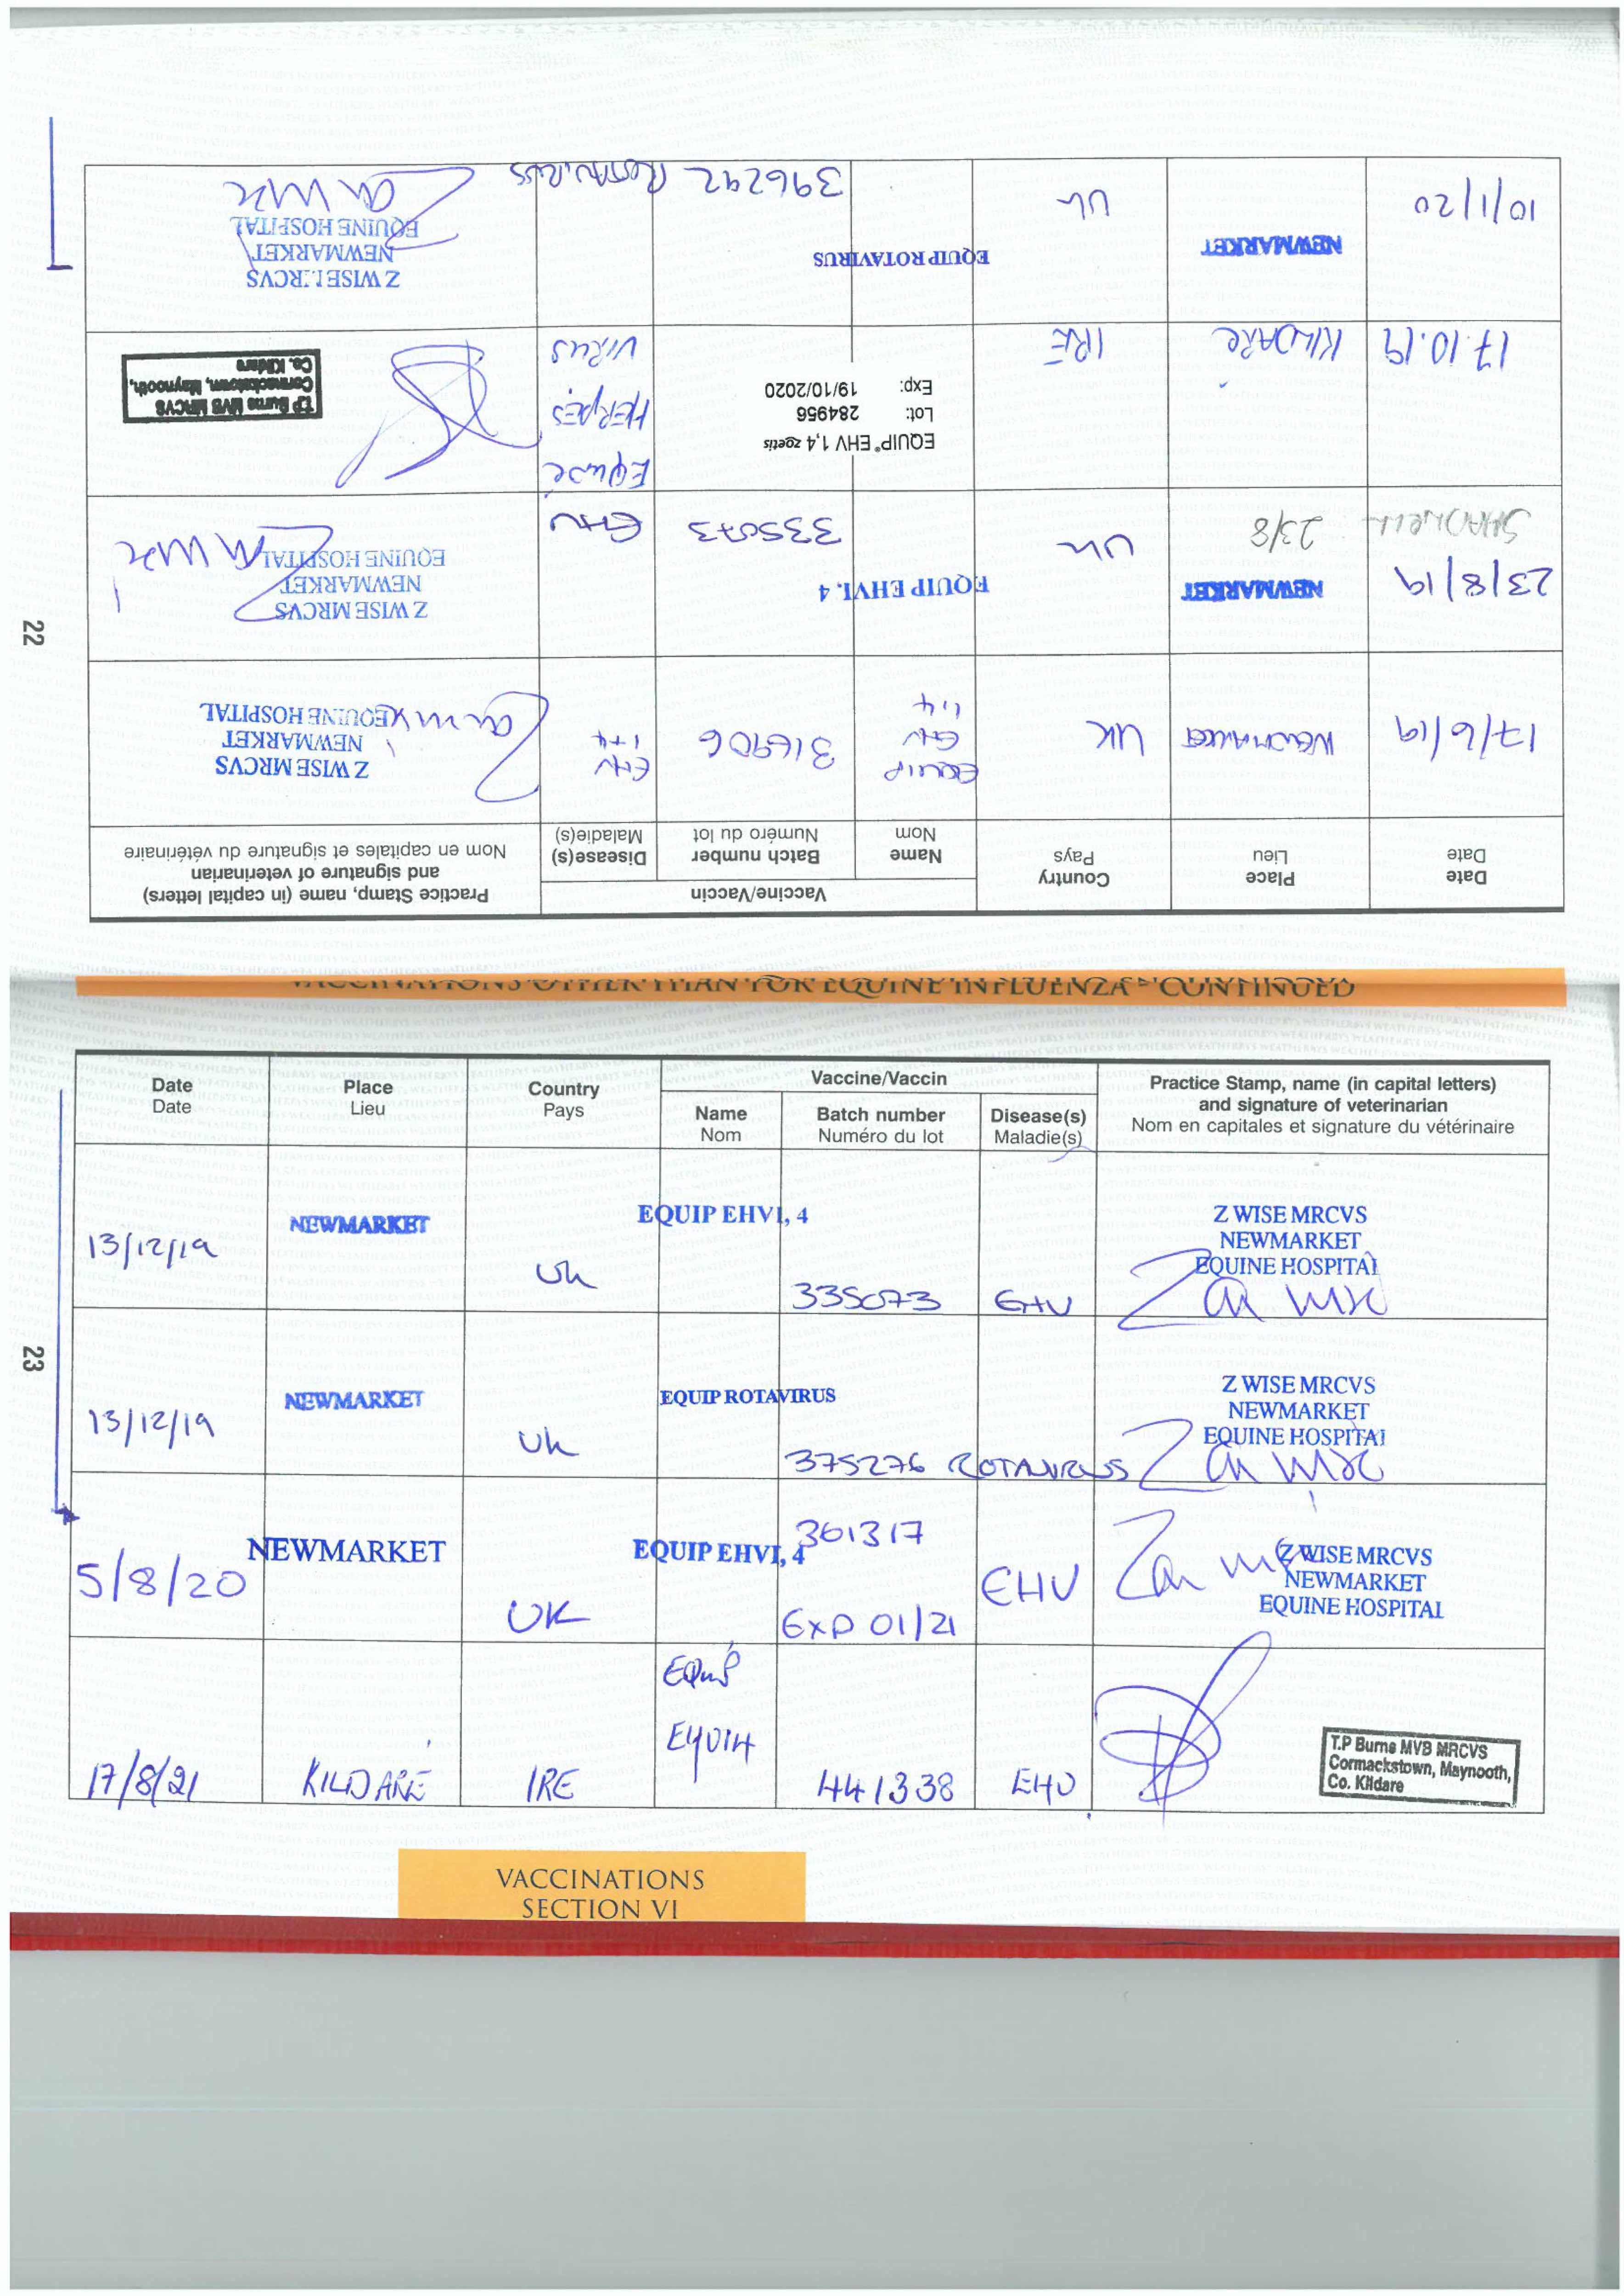 22
Date
Date
Place
Lieu
Country
Pays
Vaccine/Vaccin
Name
Nom
Batch number
Numéro du lot
Disease(s)
Maladie(s)
Practice Stamp, name (in capital letters)
and signature of veterinarian
Nom en capitales et signature du vétérinaire
17/6/19
NEWMARKET
UK
EQUIP
EHV
1,4
316906
EHV
1+4
Z WISE MRCVS
NEWMARKET
EQUINE HOSPITAL
23/8/19
NEWMARKET
23/8
UK
EQUIP EHV1, 4
335073
EHV
Z WISE MRCVS
NEWMARKET
EQUINE HOSPITAL
17.10.19
KILDARE
IRE
EQUIP® EHV 1,4 zoetis
Lot: 284956
Exp: 19/10/2020
EQUINE
HERPES
VIRUS
T.P Burns MVB MRCVS
Cormackstown, Maynooth,
Co. Kildare
10/1/20
NEWMARKET
UK
EQUIP ROTAVIRUS
396242 ROTAVIRUS
Z WISE MRCVS
NEWMARKET
EQUINE HOSPITAL
VACCINATIONS OTHER THAN FOR EQUINE INFLUENZA - CONTINUED
23
Date
Date
Place
Lieu
Country
Pays
Vaccine/Vaccin
Name
Nom
Batch number
Numéro du lot
Disease(s)
Maladie(s)
Practice Stamp, name (in capital letters)
and signature of veterinarian
Nom en capitales et signature du vétérinaire
13/12/19
NEWMARKET
UK
EQUIP EHV1, 4
335073
EHV
Z WISE MRCVS
NEWMARKET
EQUINE HOSPITAL
13/12/19
NEWMARKET
UK
EQUIP ROTAVIRUS
375276 ROTAVIRUS
Z WISE MRCVS
NEWMARKET
EQUINE HOSPITAL
5/8/20
NEWMARKET
UK
EQUIP EHV1, 4
361317
EXP 01/21
EHV
Z WISE MRCVS
NEWMARKET
EQUINE HOSPITAL
17/8/21
KILDARE
IRE
EQUIP
441338
EHV
T.P Burns MVB MRCVS
Cormackstown, Maynooth,
Co. Kildare
VACCINATIONS
SECTION VI